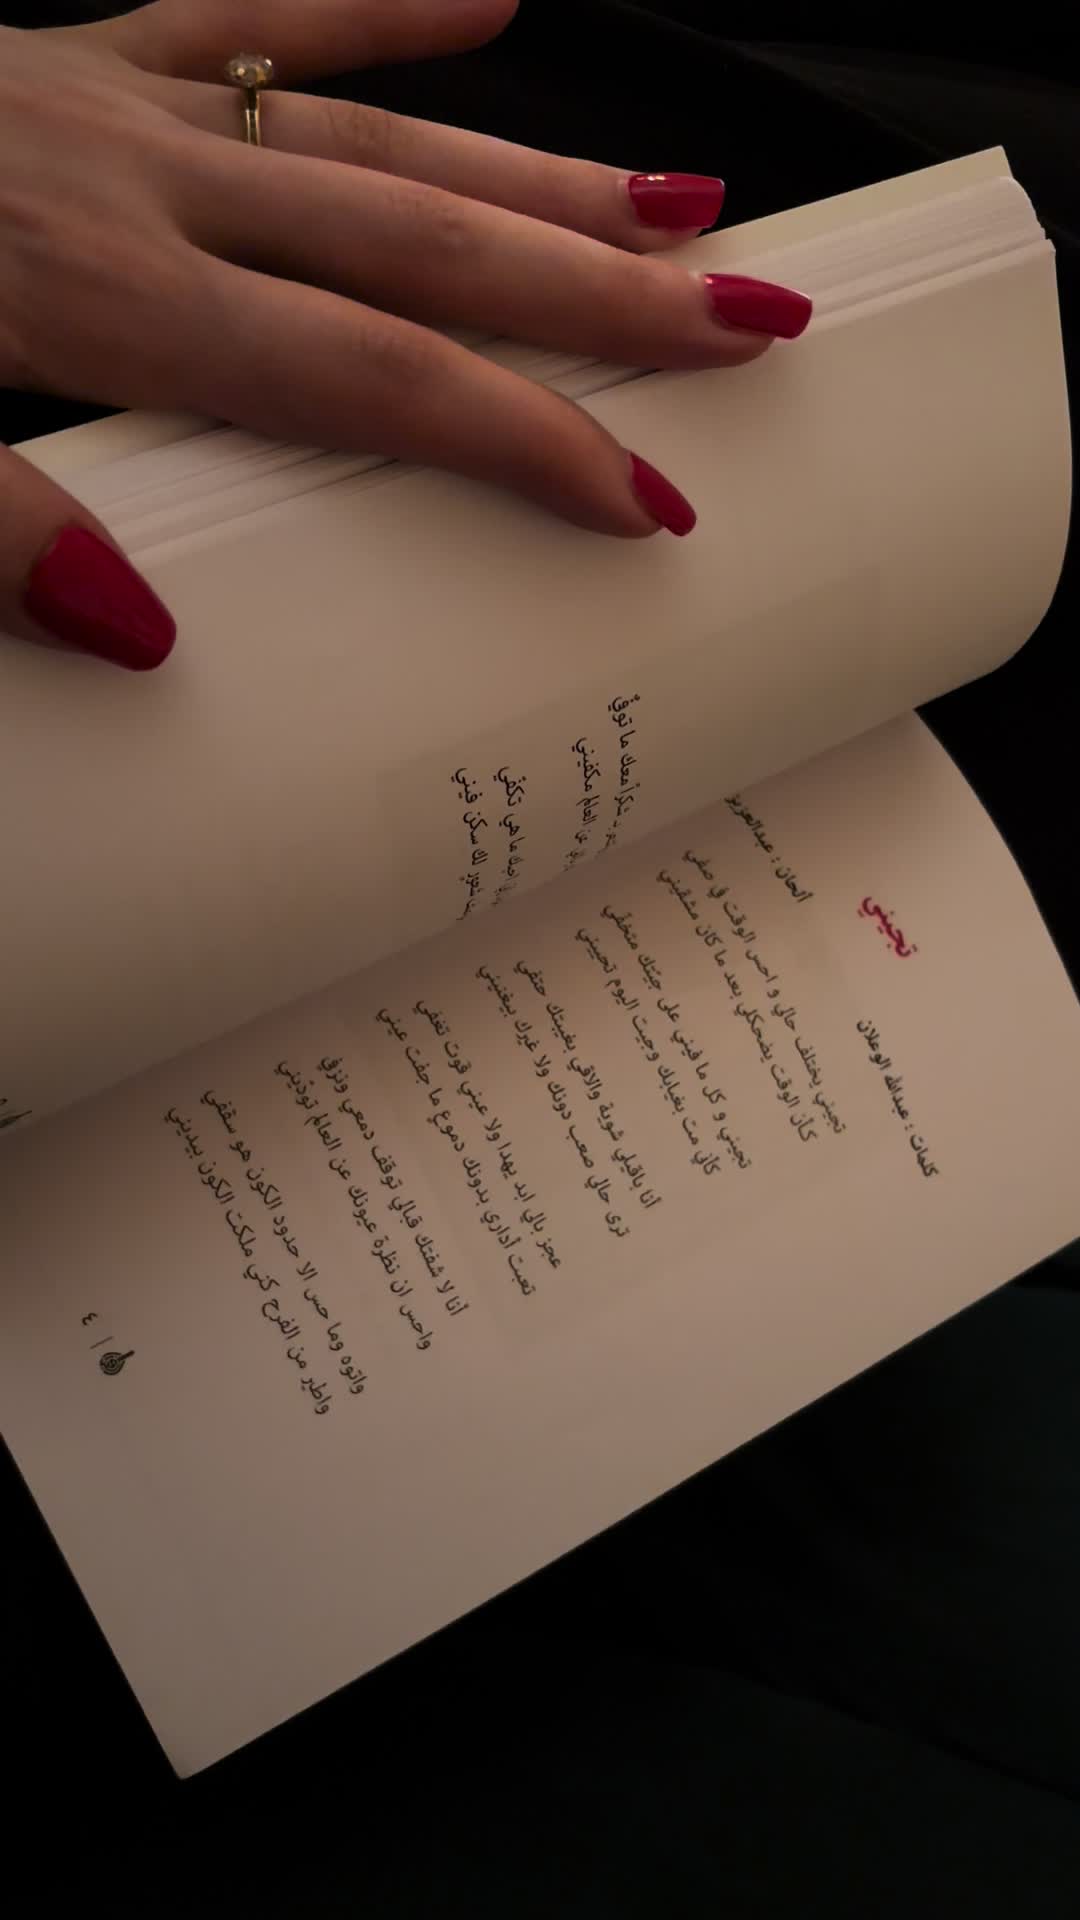 تجيني
كلمات : عبدالله الوعلان
ألحان : عبدالعزيز
تجيني يختلف حالي و احس الوقت في صفي
كأن الوقت يضحكلي بعد ما كان مشقيني
تجيني و كل ما فيني على جيّتك متخفّي
كأني مت بغيابك وجيت اليوم تحييني
أنا باقيلي شوية والاقي بغيبتك حتفي
ترى حالي صعب دونك ولا غيرك بيغنيني
عجز بالي ابد يهدا ولا عيني قوت تغفي
تعبت أداري بدونك دموع ما جفت عيني
أنا لا شفتك قبالي توقف دمعي ونزفي
واحس ان نظرة عيونك عن العالم تودّيني
واتوه وما حس الا حدود الكون هو سقفي
واطير من الفرح كني ملكت الكون بيديني
٤
شكراً معك ما توفي
عن العالم مكفيني
ما هي تكفّي
شعور لك سكن فيني